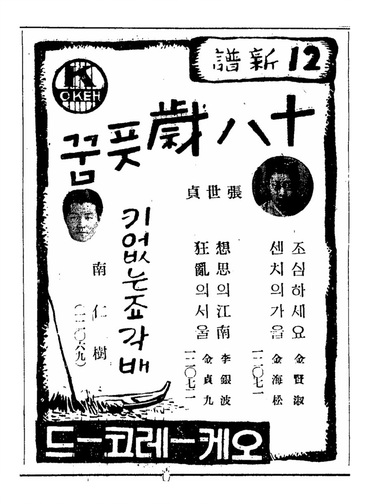 K
OKEH
12新譜
十八歲풋꿈
張世貞
조심하세요 金賢淑
센치의가을 金海松
一二〇七一
想思의江南 李銀波
狂亂의서울 金貞九
一二〇七二
키없는죠각배
南仁樹
(一二〇六九)
오케ー레코ー드